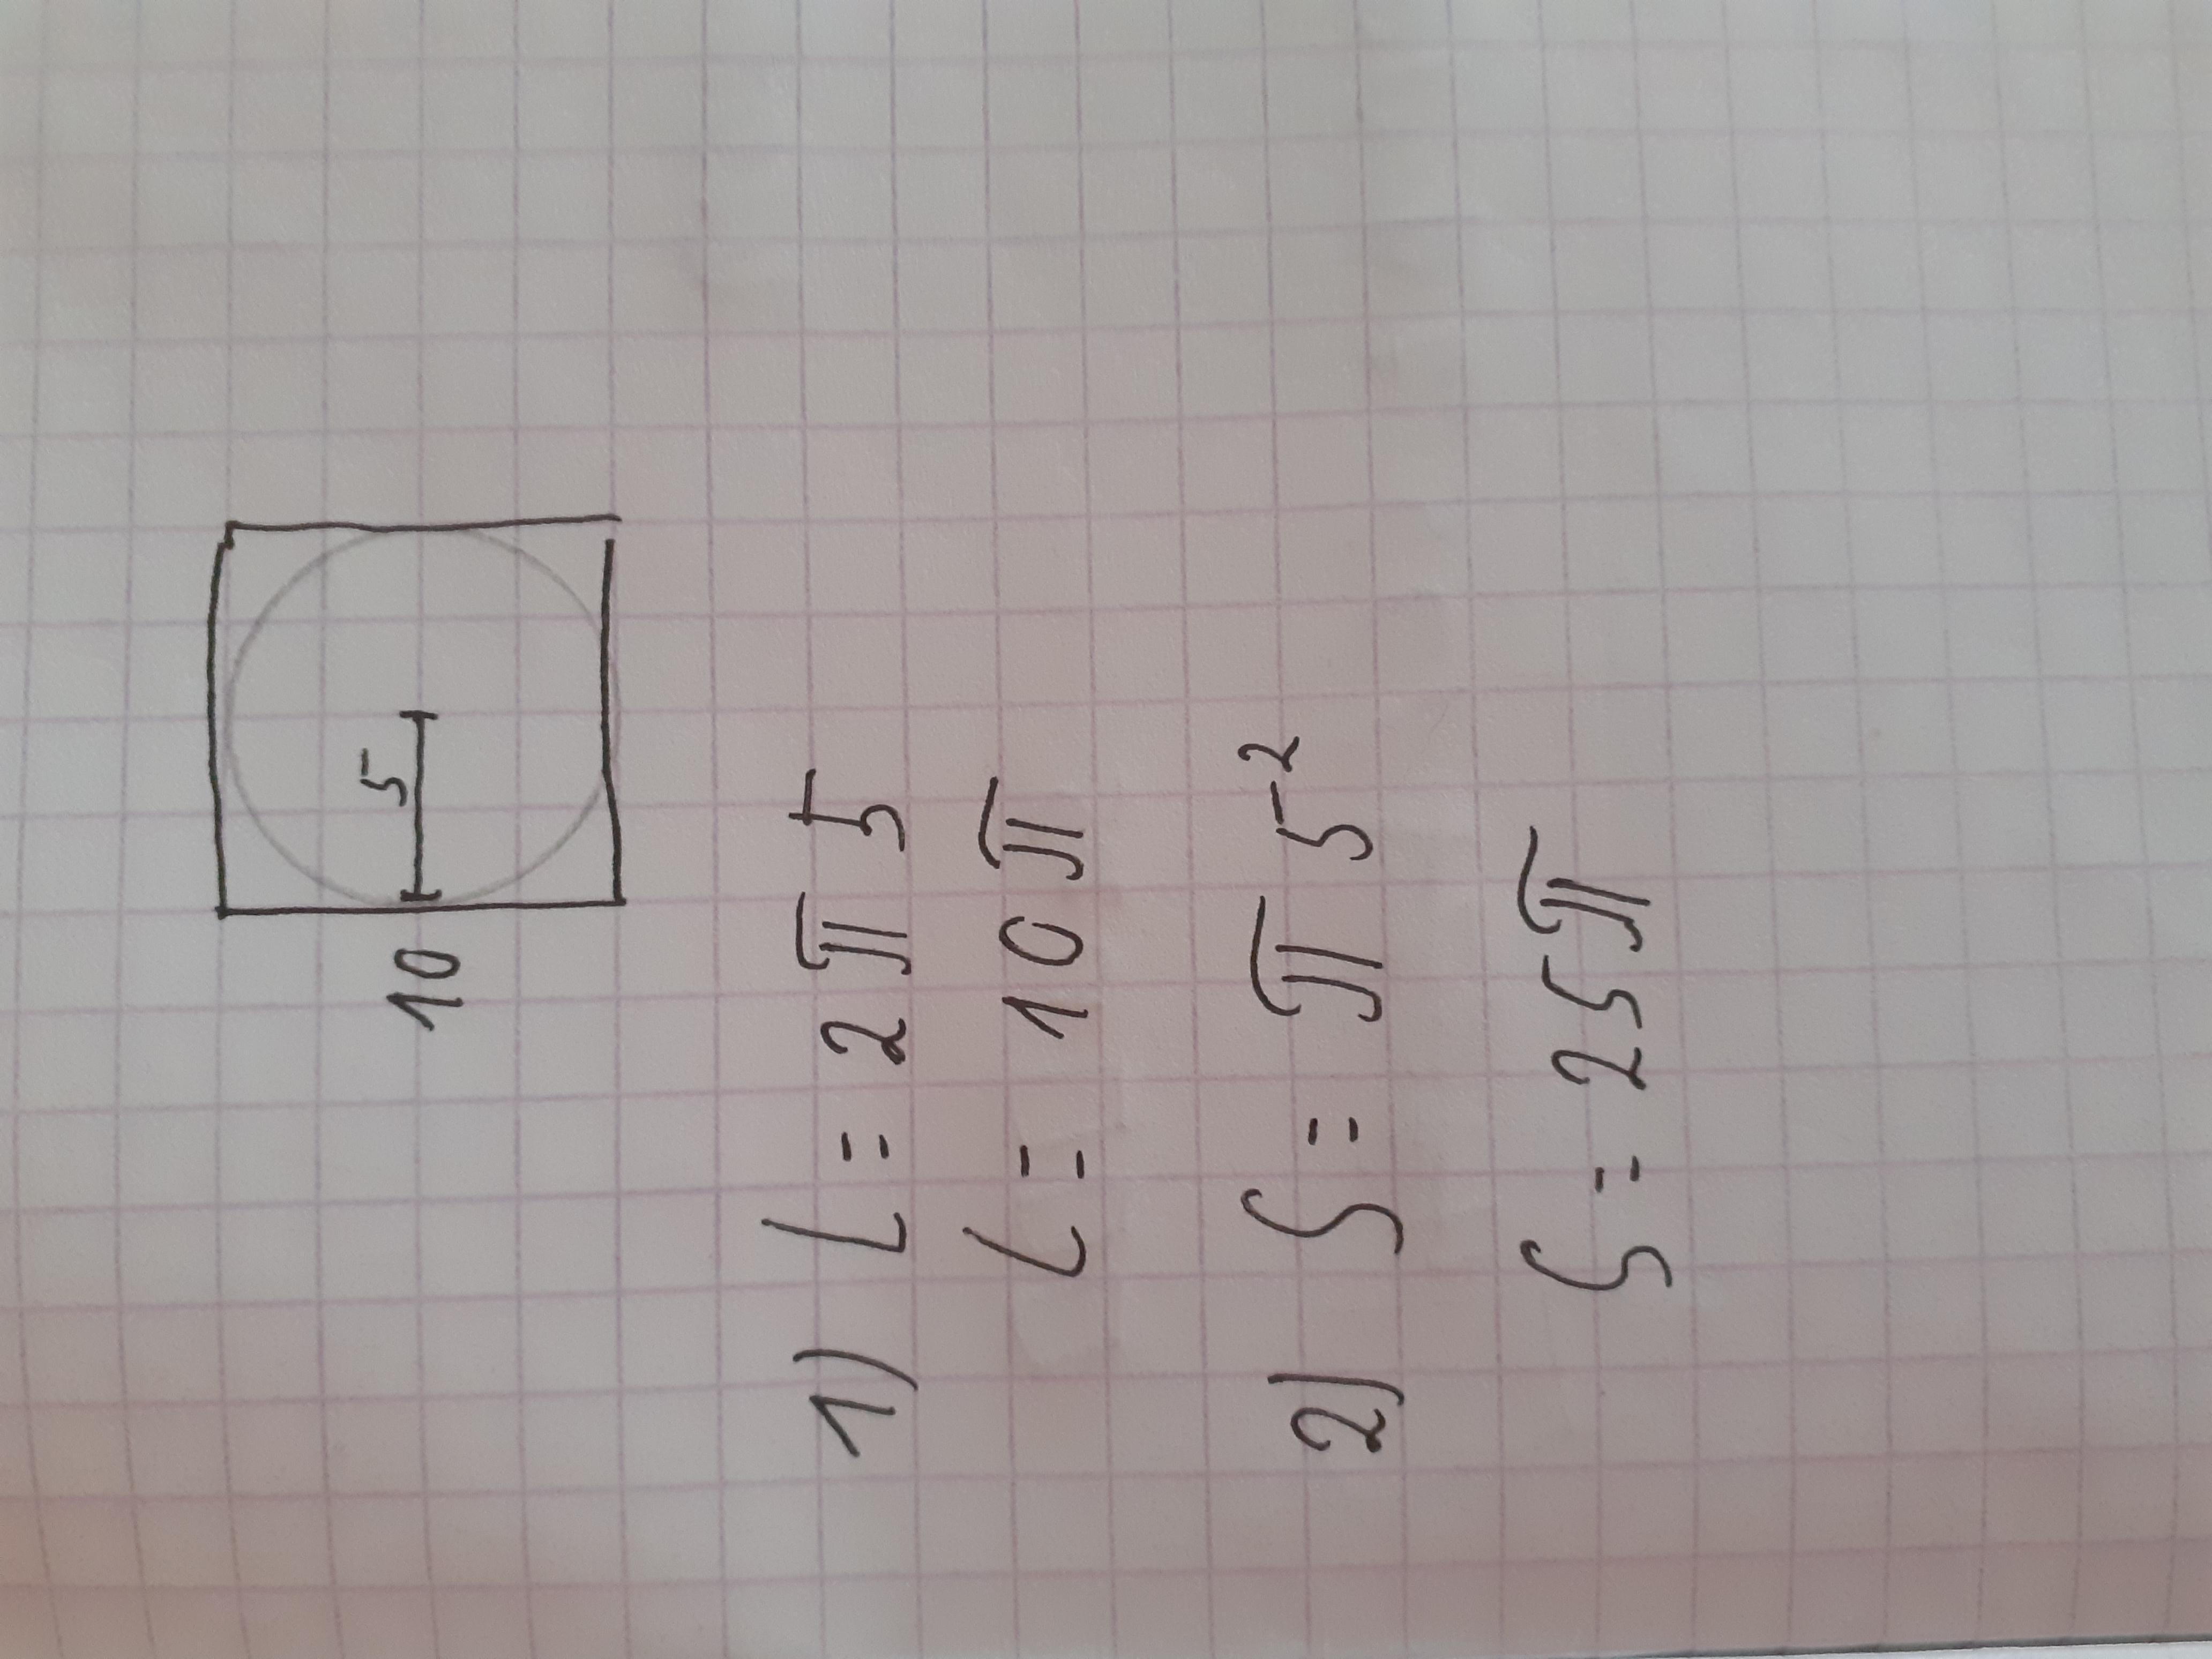 10
5
1) L = 2π 5
L = 10π
2) S = π 5²
S = 25π